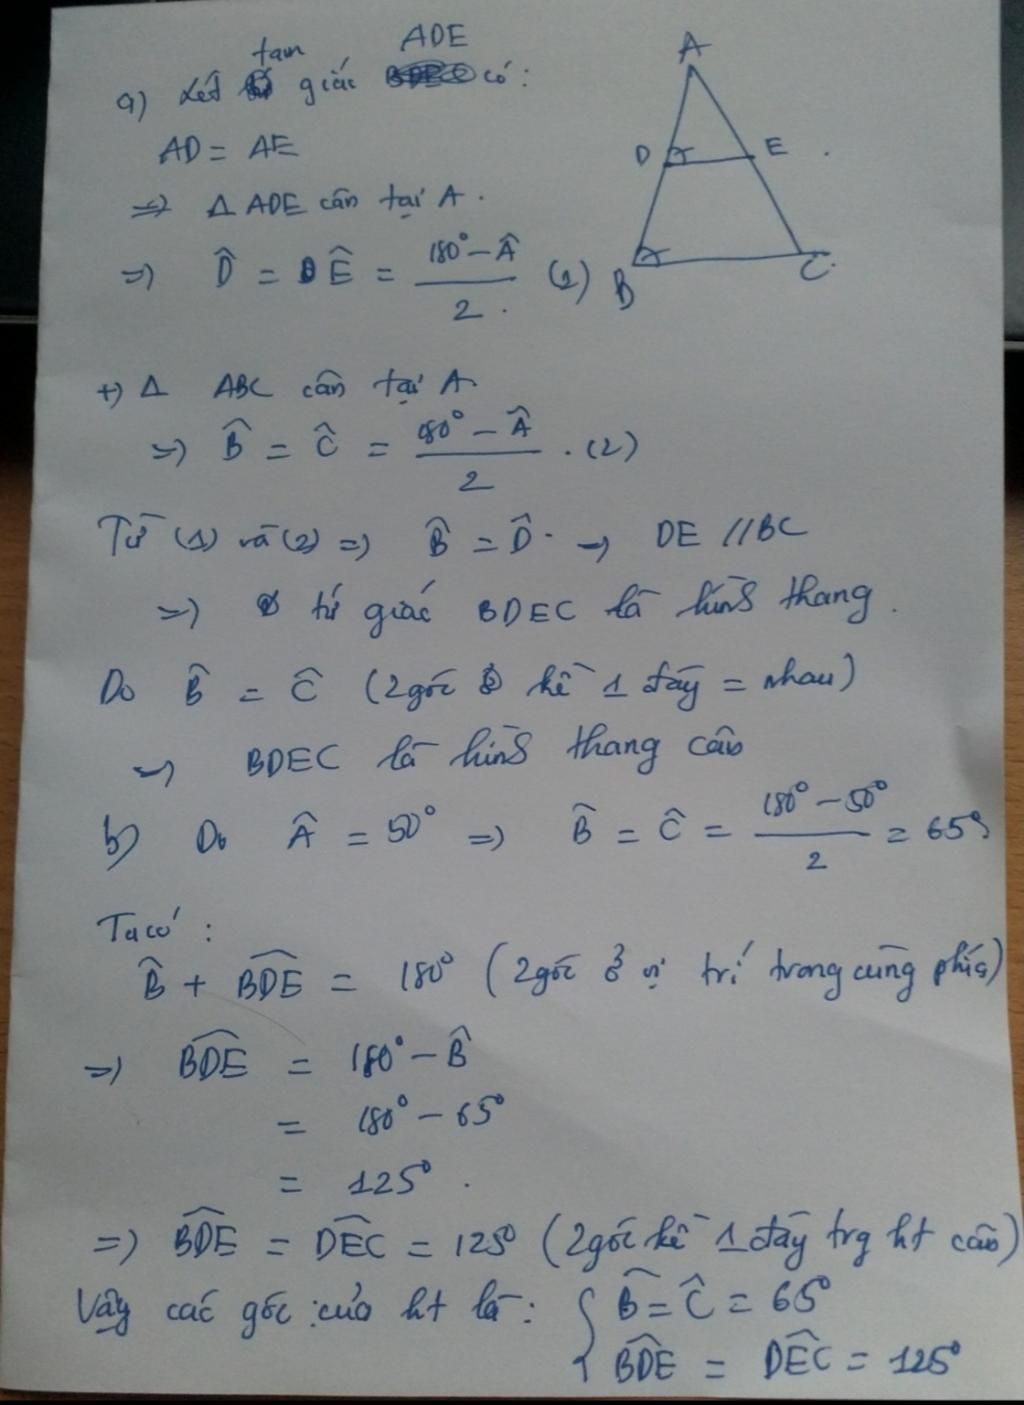 a) Xét tam giác ADE có:
AD = AE
=> Δ ADE cân tại A.
=> D̂ = Ê = (180° - Â)/2 (1)
A
D
E
B
C
+) Δ ABC cân tại A.
=> B̂ = Ĉ = (180° - Â)/2 . (2)
Từ (1) và (2) => B̂ = D̂ . → DE // BC
=> tứ giác BDEC là hình thang.
Do B̂ = Ĉ (2 góc kề 1 đáy = nhau)
→ BDEC là hình thang cân
b) Do Â = 50° => B̂ = Ĉ = (180° - 50°)/2 = 65°
Ta có:
B̂ + BDE = 180° (2 góc ở vị trí trong cùng phía)
=> BDE = 180° - B̂
= 180° - 65°
= 125° .
=> BDE = DEC = 125° (2 góc kề 1 đáy trg ht cân)
Vậy các góc của ht là: { B̂ = Ĉ = 65°
BDE = DEC = 125°